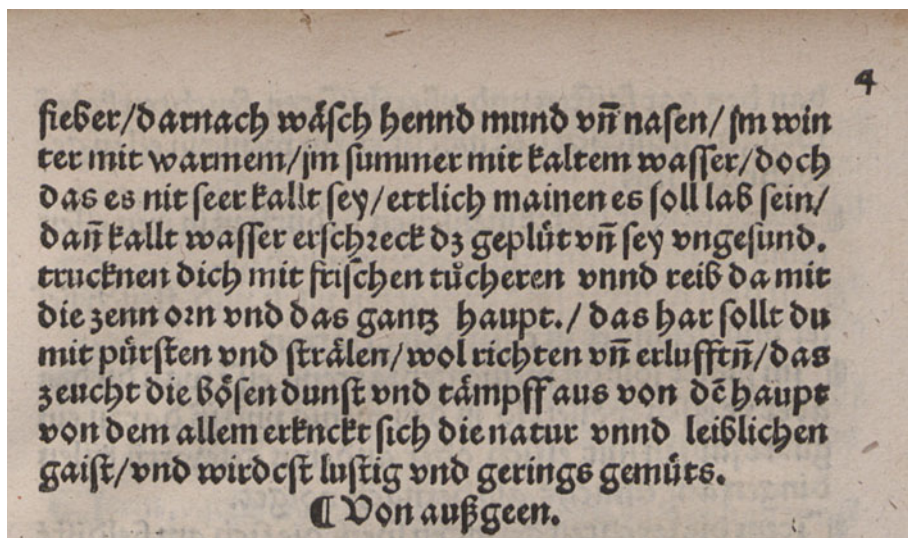 4
fieber/darnach wäſch hennd mund vn̄ naſen/ jm win
ter mit warmem/jm ſummer mit kaltem waſſer/doch
das es nit ſeer kallt ſey/ettlich mainen es ſoll lab ſein/
dan̄ kallt waſſer erſchreck dz geplüt vn̄ ſey vngeſund.
trucknen dich mit friſchen tuͤcheren vnnd reib da mit
die zenn orn vnd das gantz haupt./ das har ſollt du
mit pürſten vnd ſträlen/wol richten vn̄ erlufftn̄/das
zeucht die böſen dunſt vnd tämpff aus von dē haupt
von dem allem erknckt ſich die natur vnnd leiblichen
gaiſt/vnd wirdeſt luſtig vnd gerings gemüts.
¶ Von außgeen.